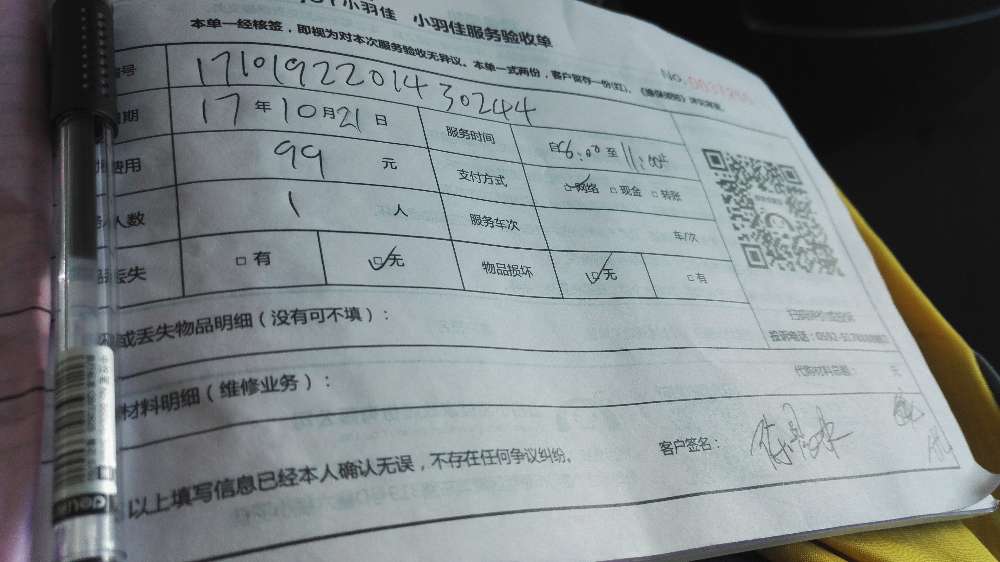 小羽佳 小羽佳服务验收单
本单一经核签，即视为对本次服务验收无异议。本单一式两份，客户留存一份(红)。
No.
号 17101922014 30244
期 17 年 10 月 21 日 服务时间 自 8:00 至 11:00
费用 99 元 支付方式 □网络 □现金 □转账
人数 1 人 服务车次 车/次
丢失 □有 □无 物品损坏 □无 □有
或丢失物品明细（没有可不填）：
投诉电话：0592-
材料明细（维修业务）： 代购材料总额： 元
以上填写信息已经本人确认无误，不存在任何争议纠纷。 客户签名：